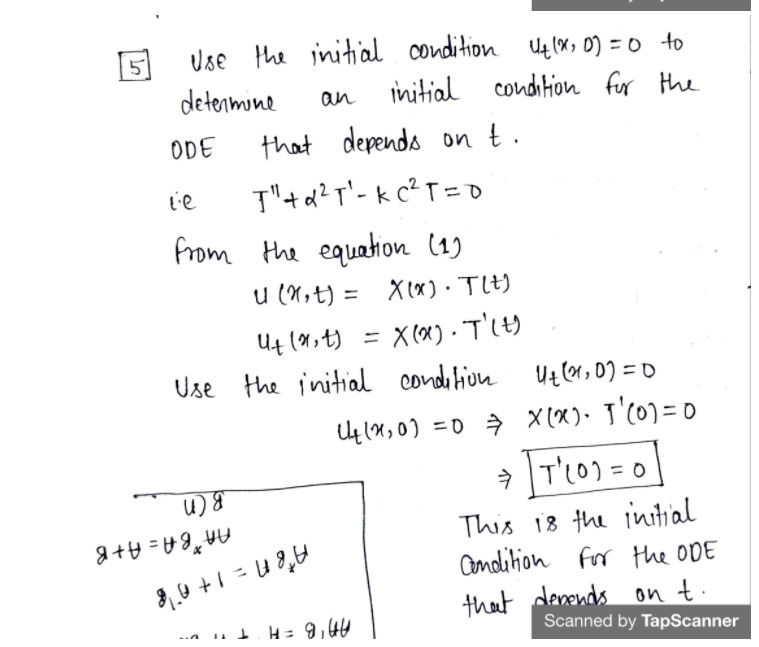 5 Use the initial condition u_t(x, 0) = 0 to
determine an initial condition for the
ODE that depends on t.
i.e T" + α² T' - k c² T = 0
from the equation (1)
u (x,t) = X(x) · T(t)
u_t (x,t) = X(x) · T'(t)
Use the initial condition u_t(x, 0) = 0
u_t(x, 0) = 0 ⇒ X(x) · T'(0) = 0
⇒ T'(0) = 0
This is the initial
Condition for the ODE
that depends on t.
Scanned by TapScanner